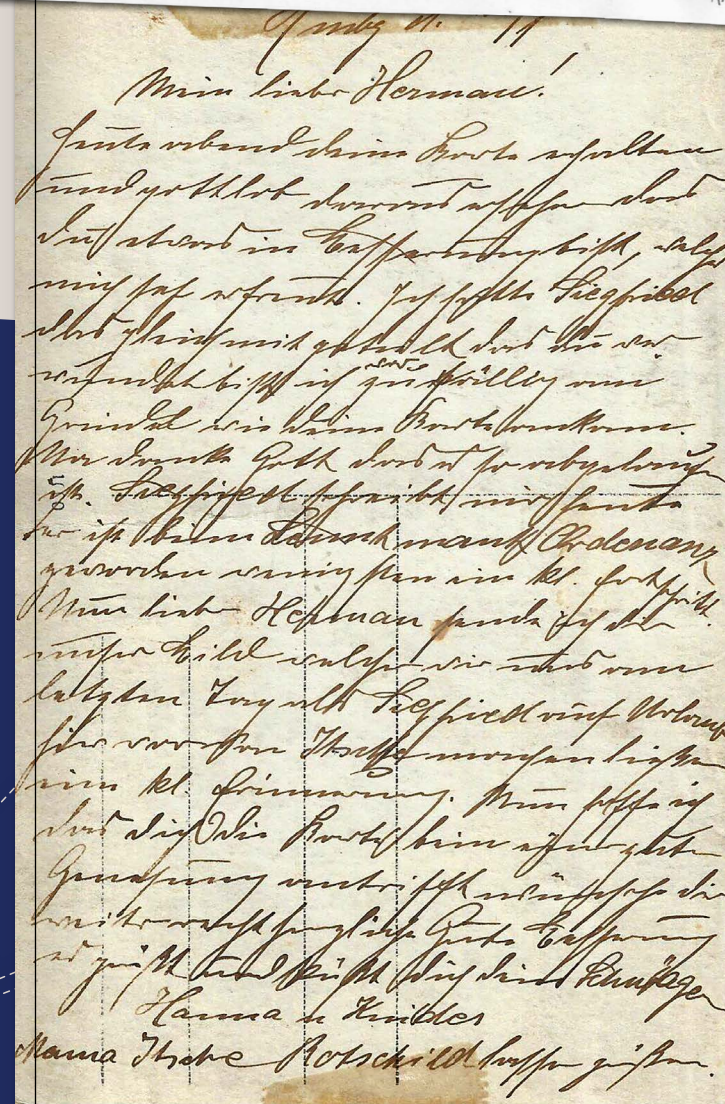 Mein lieber Herman!
Heute abend deine Karte erhalten
und gottlob daraus ersehen das
du etwas in Besserung bist, welche
mich sehr erfreut. Ich hatte Siegfried
das gleich mit geteilt das du ver
wundet bist ich war zufällig am
Grindel wie deine Karte ankam.
Na danke Gott das es so abgelaufen
ist. Siegfried schreibt mir heute
er ist beim Ordenanz
geworden wenigsten ein kl. Fortschritt.
Nun lieber Herman sende ich dir
unser Bild welches wir uns am
letzten Tag als Siegfried auf Urlaub
hier war von machen ließen
ein kl. Erinnerung. Nun hoffe ich
das dich die Karte beim guter
Genesung antrifft wünsche dir
weiter recht herzliche Gute Besserung
es grüßt und küßt dich deine Schwägerin
Hanna u Kindes
Mama Rotschild lassen grüßen.